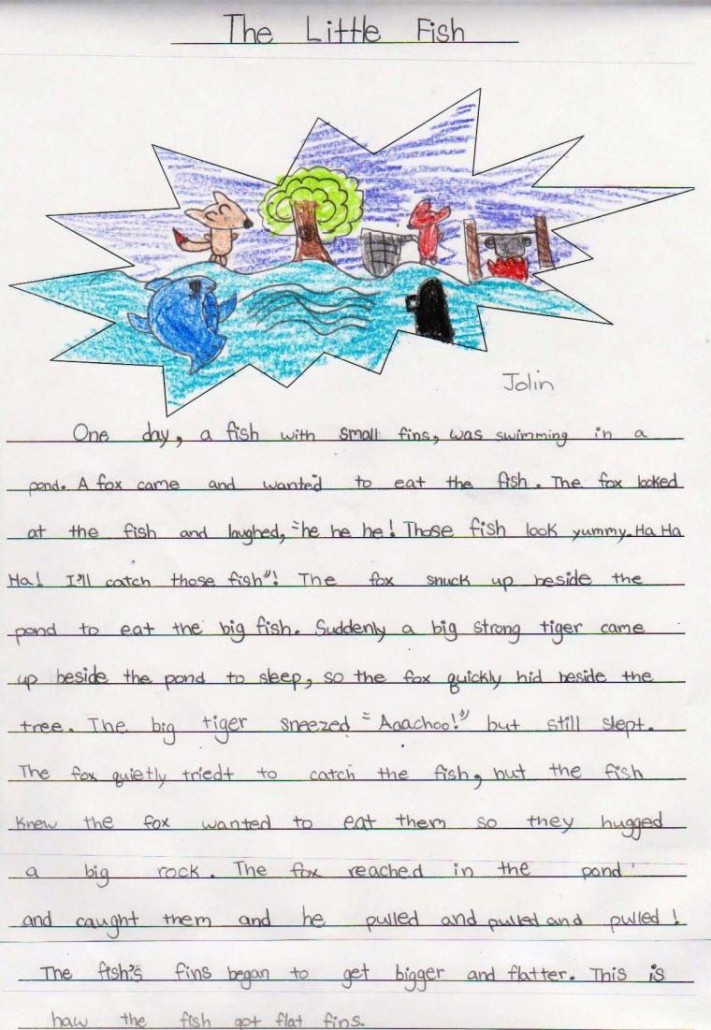 The Little Fish
Jolin
One day, a fish with small fins, was swimming in a
pond. A fox came and wanted to eat the fish. The fox looked
at the fish and laughed, "he he he! Those fish look yummy. Ha Ha
Ha! I'll catch those fish"! The fox snuck up beside the
pond to eat the big fish. Suddenly a big strong tiger came
up beside the pond to sleep, so the fox quickly hid beside the
tree. The big tiger sneezed "Aaachoo!" but still slept.
The fox quietly triedt to catch the fish, but the fish
knew the fox wanted to eat them so they hugged
a big rock. The fox reached in the pond
and caught them and he pulled and pulled and pulled!
The fish's fins began to get bigger and flatter. This is
haw the fish got flat fins.